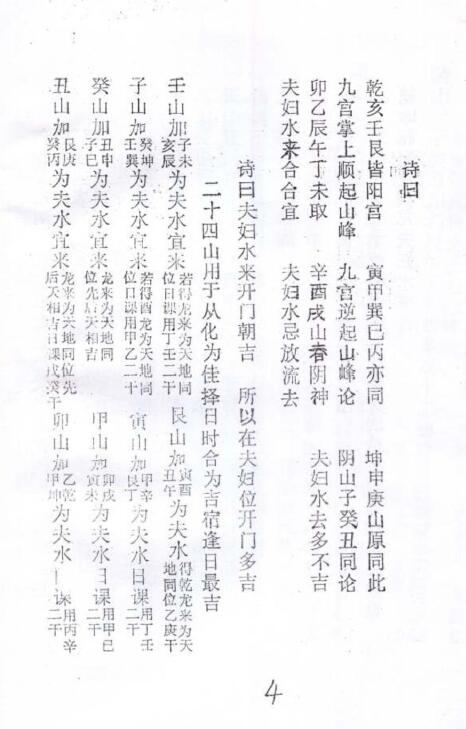 诗曰
乾亥壬艮皆阳宫 寅甲巽巳丙亦同 坤申庚山原同此
九宫掌上顺起山峰 九宫逆起山峰论 阴山子癸丑同论
卯乙辰午丁未取 辛酉戌山春阴神
夫妇水来合合宜 夫妇水忌放流去 夫妇水去多不吉
诗曰夫妇水来开门朝吉 所以在夫妇位开门多吉
二十四山用于从化为佳择日时合为吉宿逢日最吉
壬山加子未亥辰为夫水宜来若得龙来为天地同位日课用丁壬二干 艮山加寅酉丑午为夫水得乾龙来为天地同位乙庚干
子山加癸坤壬巽为夫水宜来若得酉龙为天地同位口课用甲乙二干 寅山加甲辛艮丁为夫水日课用丁壬二干
癸山加丑申子巳为夫水宜来龙来为天地同位先后天相吉 甲山加卯戌寅未为夫水日课用甲巳二干
丑山加艮庚癸丙为夫水宜来龙来为天地同位先后天相吉日课戊癸干 卯山加乙乾甲坤为夫水日课用丙辛二干
4